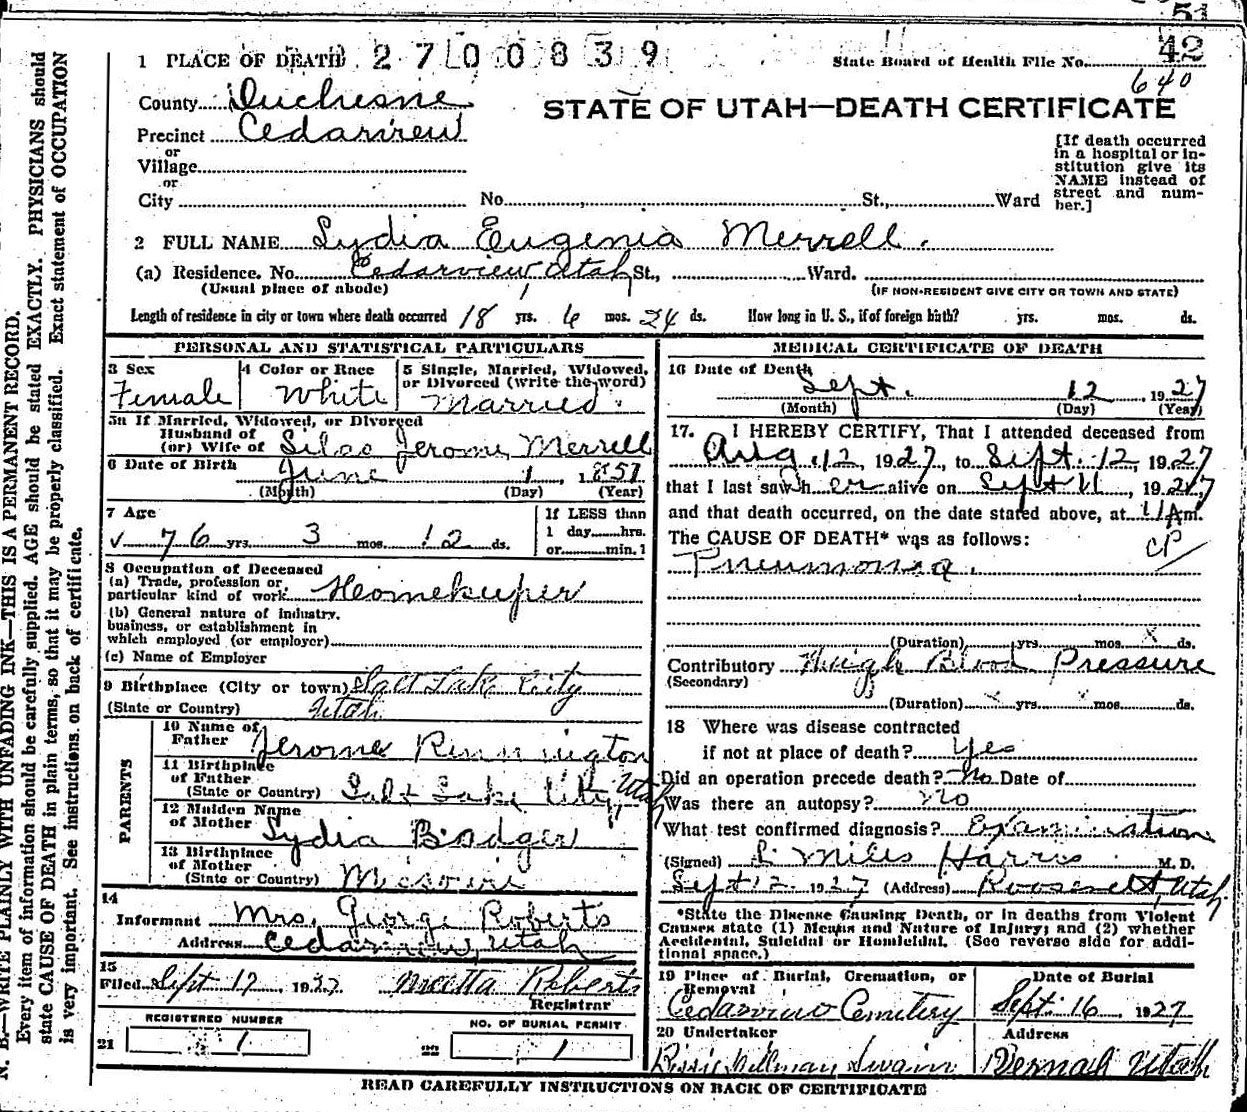 51
1 PLACE OF DEATH 2700839 State Board of Health File No. 42
640
County Duchesne STATE OF UTAH—DEATH CERTIFICATE
Precinct Cedarview
or
Village
or
City No. St., Ward
[If death occurred
in a hospital or in-
stitution give its
NAME instead of
street and num-
ber.]
2 FULL NAME Lydia Eugenia Merrell.
(a) Residence. No. Cedarview, Utah St., Ward.
(Usual place of abode) (IF NON-RESIDENT GIVE CITY OR TOWN AND STATE)
Length of residence in city or town where death occurred 18 yrs. 6 mos. 24 ds. How long in U. S., if of foreign birth? yrs. mos. ds.
PERSONAL AND STATISTICAL PARTICULARS
3 Sex Female
4 Color or Race White
5 Single, Married, Widowed,
or Divorced (write the word)
Married.
5a If Married, Widowed, or Divorced
Husband of
(or) Wife of Silas Jerome Merrell
6 Date of Birth June 1, 1857
(Month) (Day) (Year)
7 Age
✓ 76 yrs. 3 mos. 12 ds.
If LESS than
1 day hrs.
or min.?
8 Occupation of Deceased
(a) Trade, profession or
particular kind of work Homekeeper
(b) General nature of industry,
business, or establishment in
which employed (or employer)
(c) Name of Employer
9 Birthplace (City or town) Salt Lake City
(State or Country) Utah
PARENTS
10 Name of
Father Jerome Remington
11 Birthplace
of Father
(State or Country) Salt Lake City, Utah
12 Maiden Name
of Mother Lydia Badger
13 Birthplace
of Mother
(State or Country) Missouri
14
Informant Mrs. George Roberts
Address Cedarview, Utah
15
Filed Sept 17 1927 Roberts
Registrar
REGISTERED NUMBER
21 1
NO. OF BURIAL PERMIT
22 1
MEDICAL CERTIFICATE OF DEATH
16 Date of Death
Sept. 12, 1927
(Month) (Day) (Year)
17. I HEREBY CERTIFY, That I attended deceased from
Aug. 12, 1927, to Sept. 12, 1927
that I last saw her alive on Sept 11, 1927
and that death occurred, on the date stated above, at 4 A m.
The CAUSE OF DEATH* was as follows:
Pneumonia.
(Duration) yrs. mos. x ds.
Contributory High Blood Pressure
(Secondary)
(Duration) x yrs. x mos. ds.
18 Where was disease contracted
if not at place of death? Yes
Did an operation precede death? No Date of
Was there an autopsy? No
What test confirmed diagnosis? Examination
(Signed) L. Miles Harris M. D.
Sept 12 1927 (Address) Roosevelt, Utah
*State the Disease Causing Death, or in deaths from Violent
Causes state (1) Means and Nature of Injury; and (2) whether
Accidental, Suicidal or Homicidal. (See reverse side for addi-
tional space.)
19 Place of Burial, Cremation, or
Removal
Cedarview Cemetery
Date of Burial
Sept. 16 1927
20 Undertaker
Swain
Address
Vernal Utah
READ CAREFULLY INSTRUCTIONS ON BACK OF CERTIFICATE
N. B.—WRITE PLAINLY WITH UNFADING INK—THIS IS A PERMANENT RECORD.
Every item of information should be carefully supplied. AGE should be stated EXACTLY. PHYSICIANS should
state CAUSE OF DEATH in plain terms, so that it may be properly classified. Exact statement of OCCUPATION
is very important. See instructions on back of certificate.